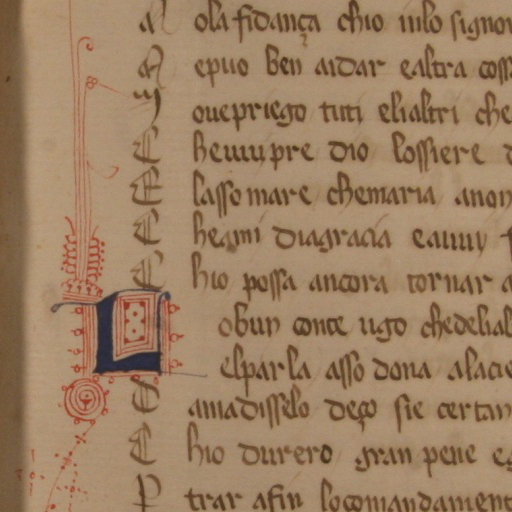 A ola fidança chio nilo signor
A epuo ben aidar ealtra coss
M ouepriego tuti elialtri che
C heuuupre dio lossiere d
E lasso mare chemaria anon
C heami diagracia eauuy
C hio possa ancora tornar a
L obun conte ugo chedelial
elparla asso dona alacie
C amadisselo deço sie certan
C hio durero gran pene eg
P trar afin locomandament